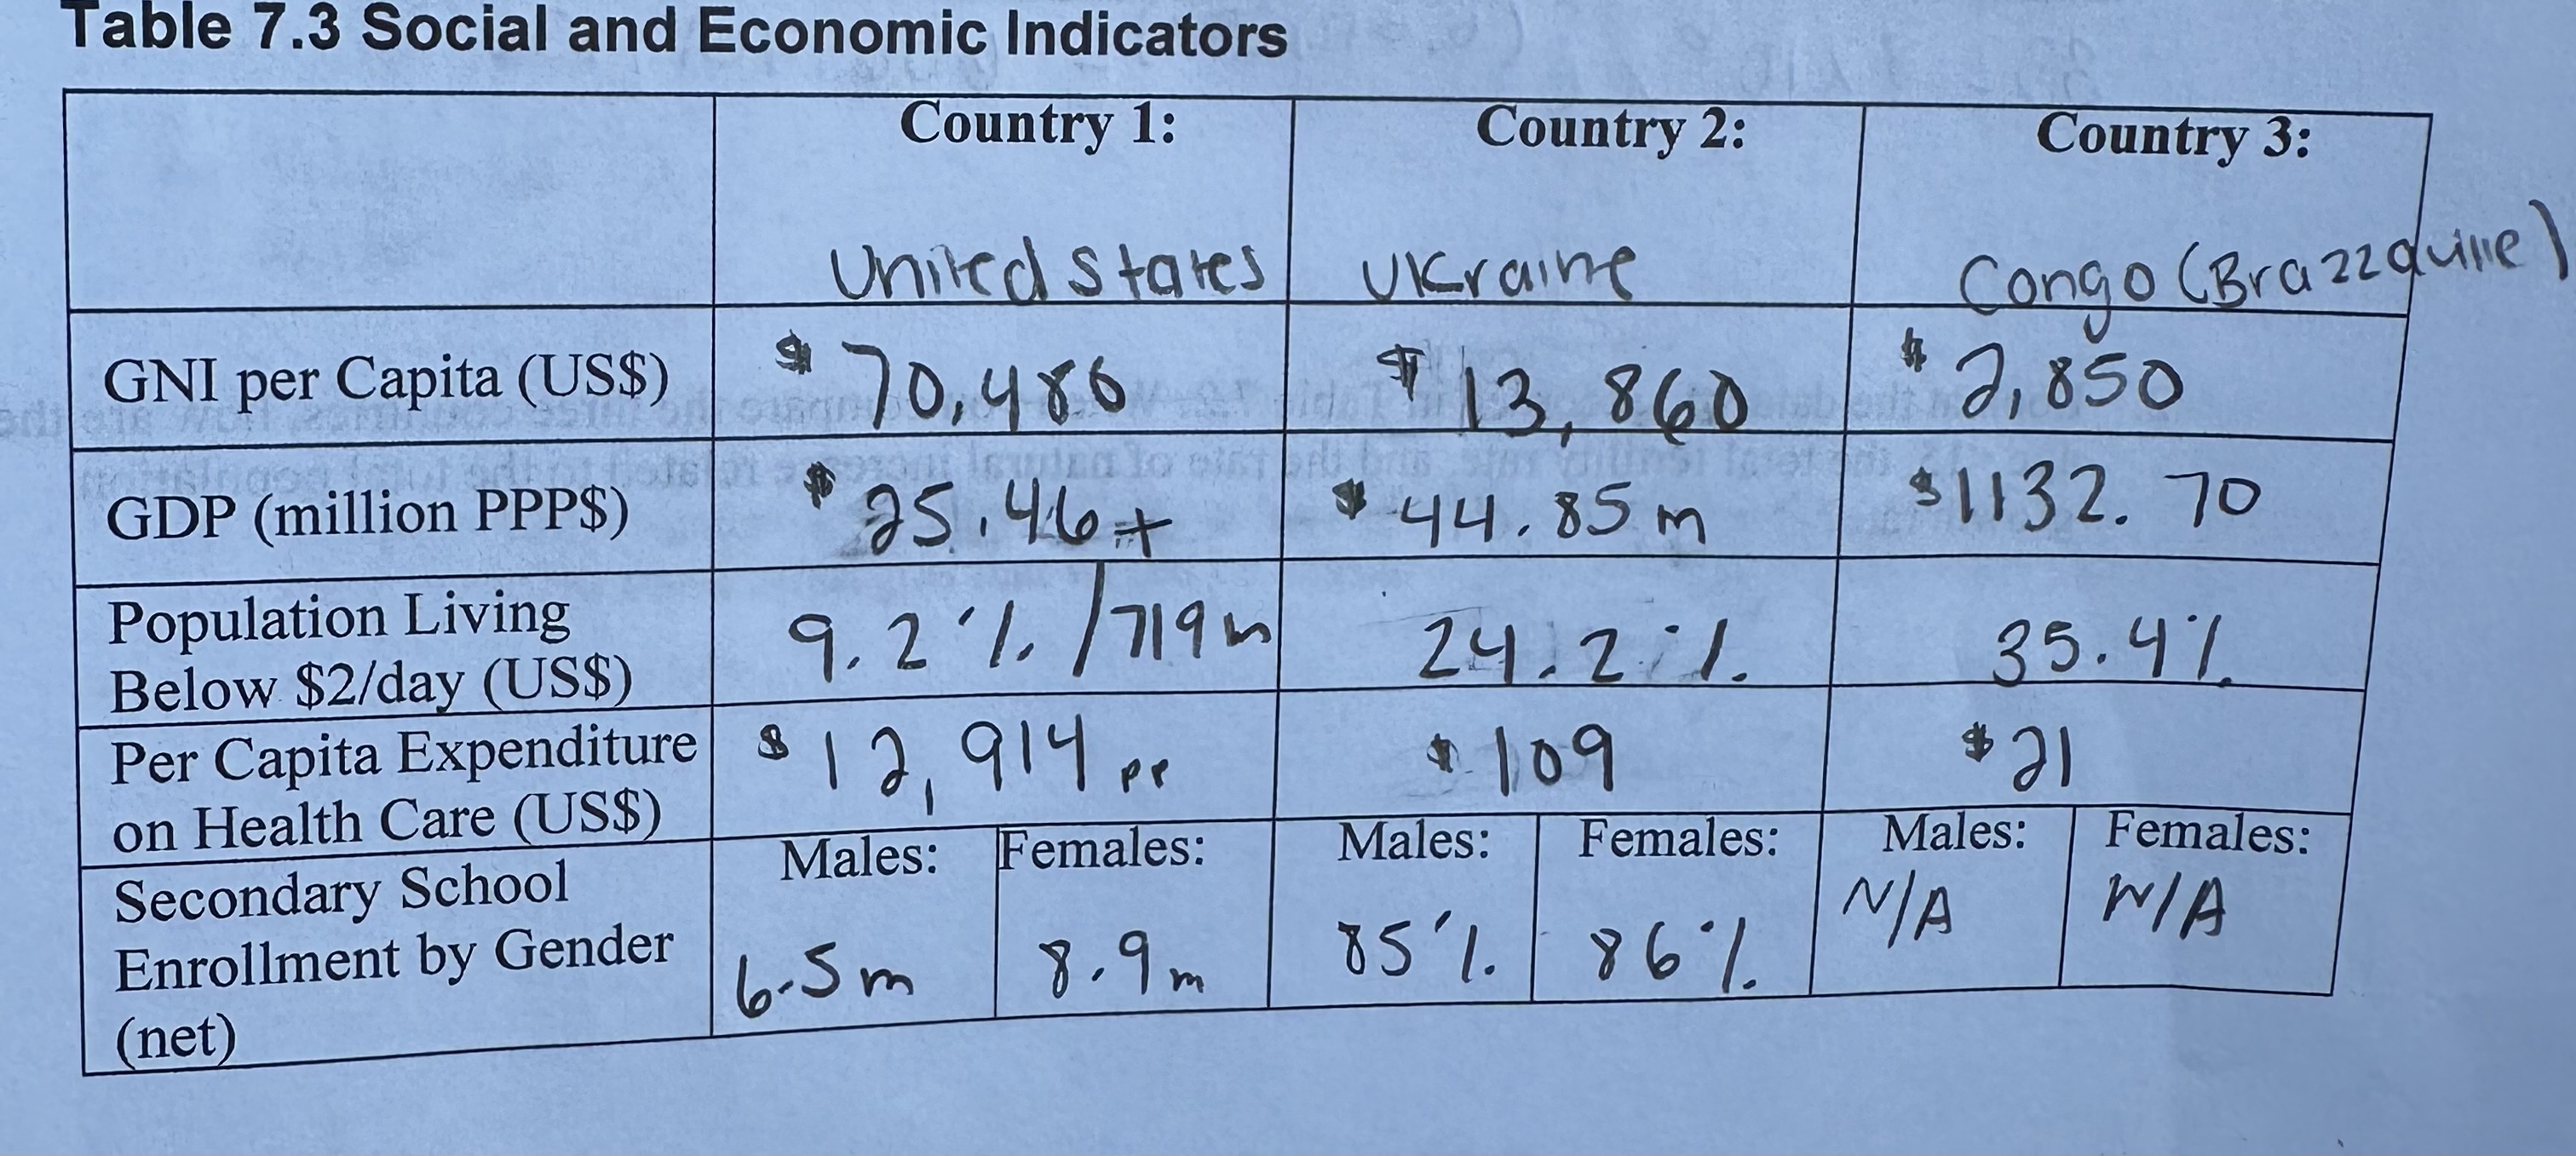 Table 7.3 Social and Economic Indicators
Country 1: Country 2: Country 3:
United States Ukraine Congo (Brazzaville)
GNI per Capita (US$) $70,480 $13,860 $2,850
GDP (million PPP$) $25.46+ $44.85m $1132.70
Population Living
Below $2/day (US$) 9.2%/719m 24.2% 35.4%
Per Capita Expenditure
on Health Care (US$) $12,914 pp $109 $21
Secondary School
Enrollment by Gender
(net)
Males: Females: Males: Females: Males: Females:
6.5m 8.9m 85% 86% N/A N/A